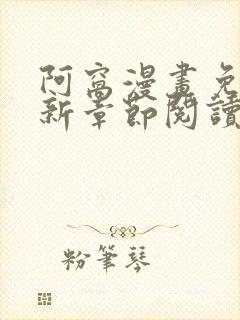 阿窩漫畫免
新章節閱讀
粉筆琴